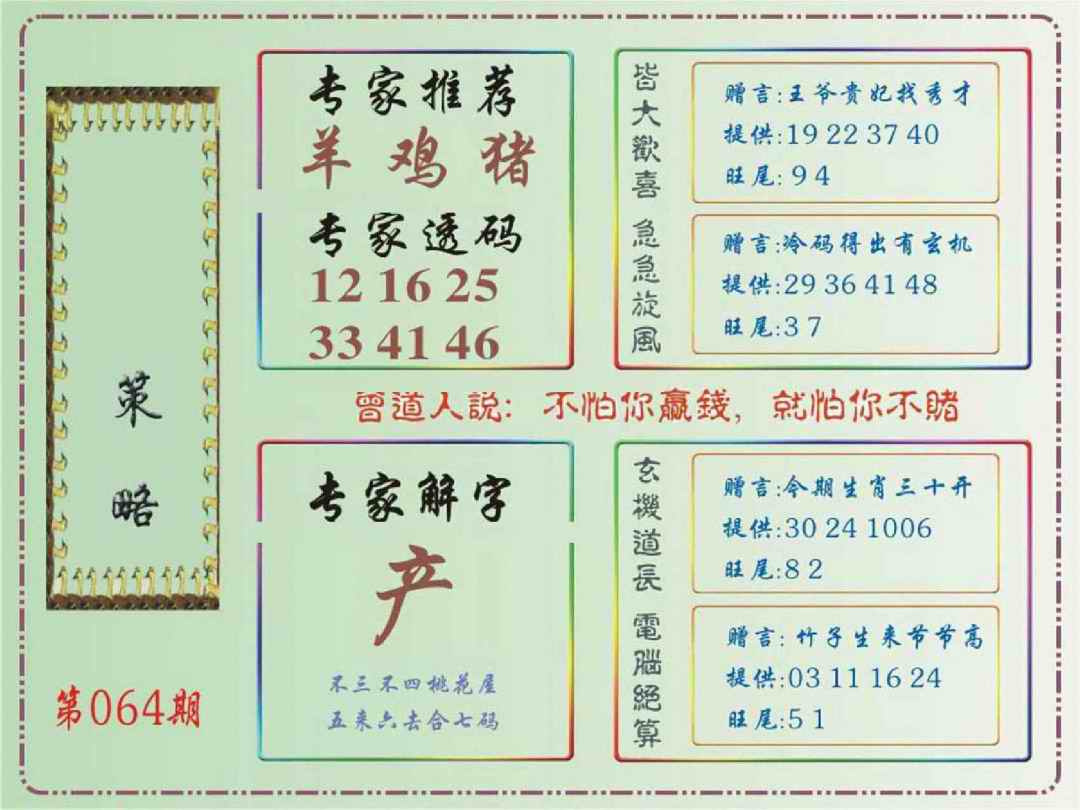 策略
第064期
专家推荐
羊 鸡 猪
专家透码
12 16 25
33 41 46
皆大歡喜
赠言:王爷贵妃找秀才
提供:19 22 37 40
旺尾:9 4
急急旋風
赠言:冷码得出有玄机
提供:29 36 41 48
旺尾:3 7
曾道人説: 不怕你贏錢, 就怕你不賭
专家解字
产
不三不四桃花屋
五来六去合七码
玄機道長
赠言:今期生肖三十开
提供:30 24 1006
旺尾:8 2
電腦絕算
赠言: 竹子生来节节高
提供:03 11 16 24
旺尾:5 1